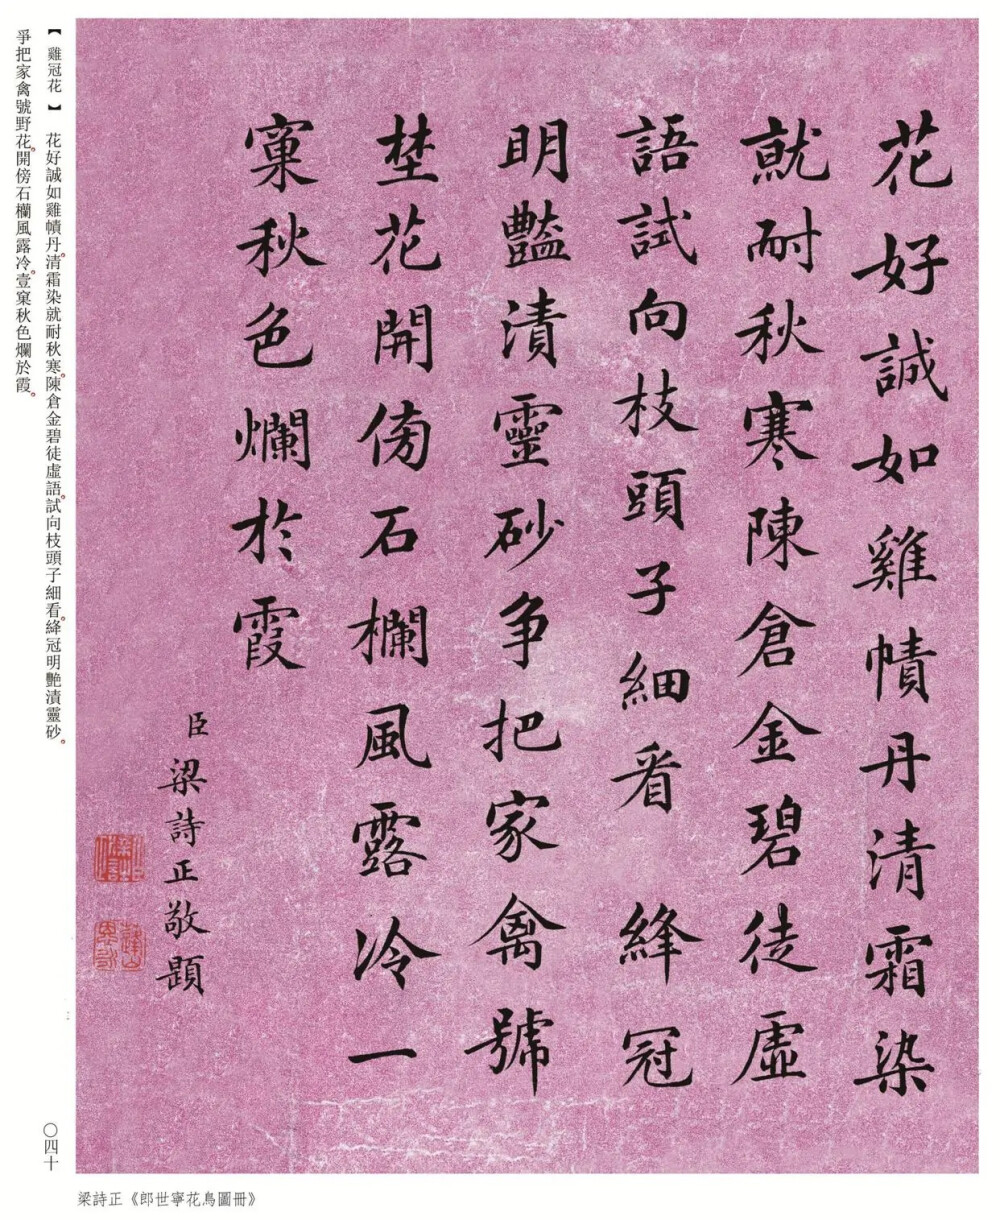 花好誠如雞幘丹清霜染
就耐秋寒陳倉金碧徒虛
語試向枝頭子細看絳冠
明豔漬靈砂爭把家禽號
埜花開傍石欄風露冷一
窠秋色爛於霞
臣梁詩正敬題
【雞冠花】 花好誠如雞幘丹。清霜染就耐秋寒。陳倉金碧徒虛語。試向枝頭子細看。絳冠明艷漬靈砂。
爭把家禽號野花。開傍石欄風露冷。壹窠秋色爛於霞。
〇四十
梁詩正《郎世寧花鳥圖冊》